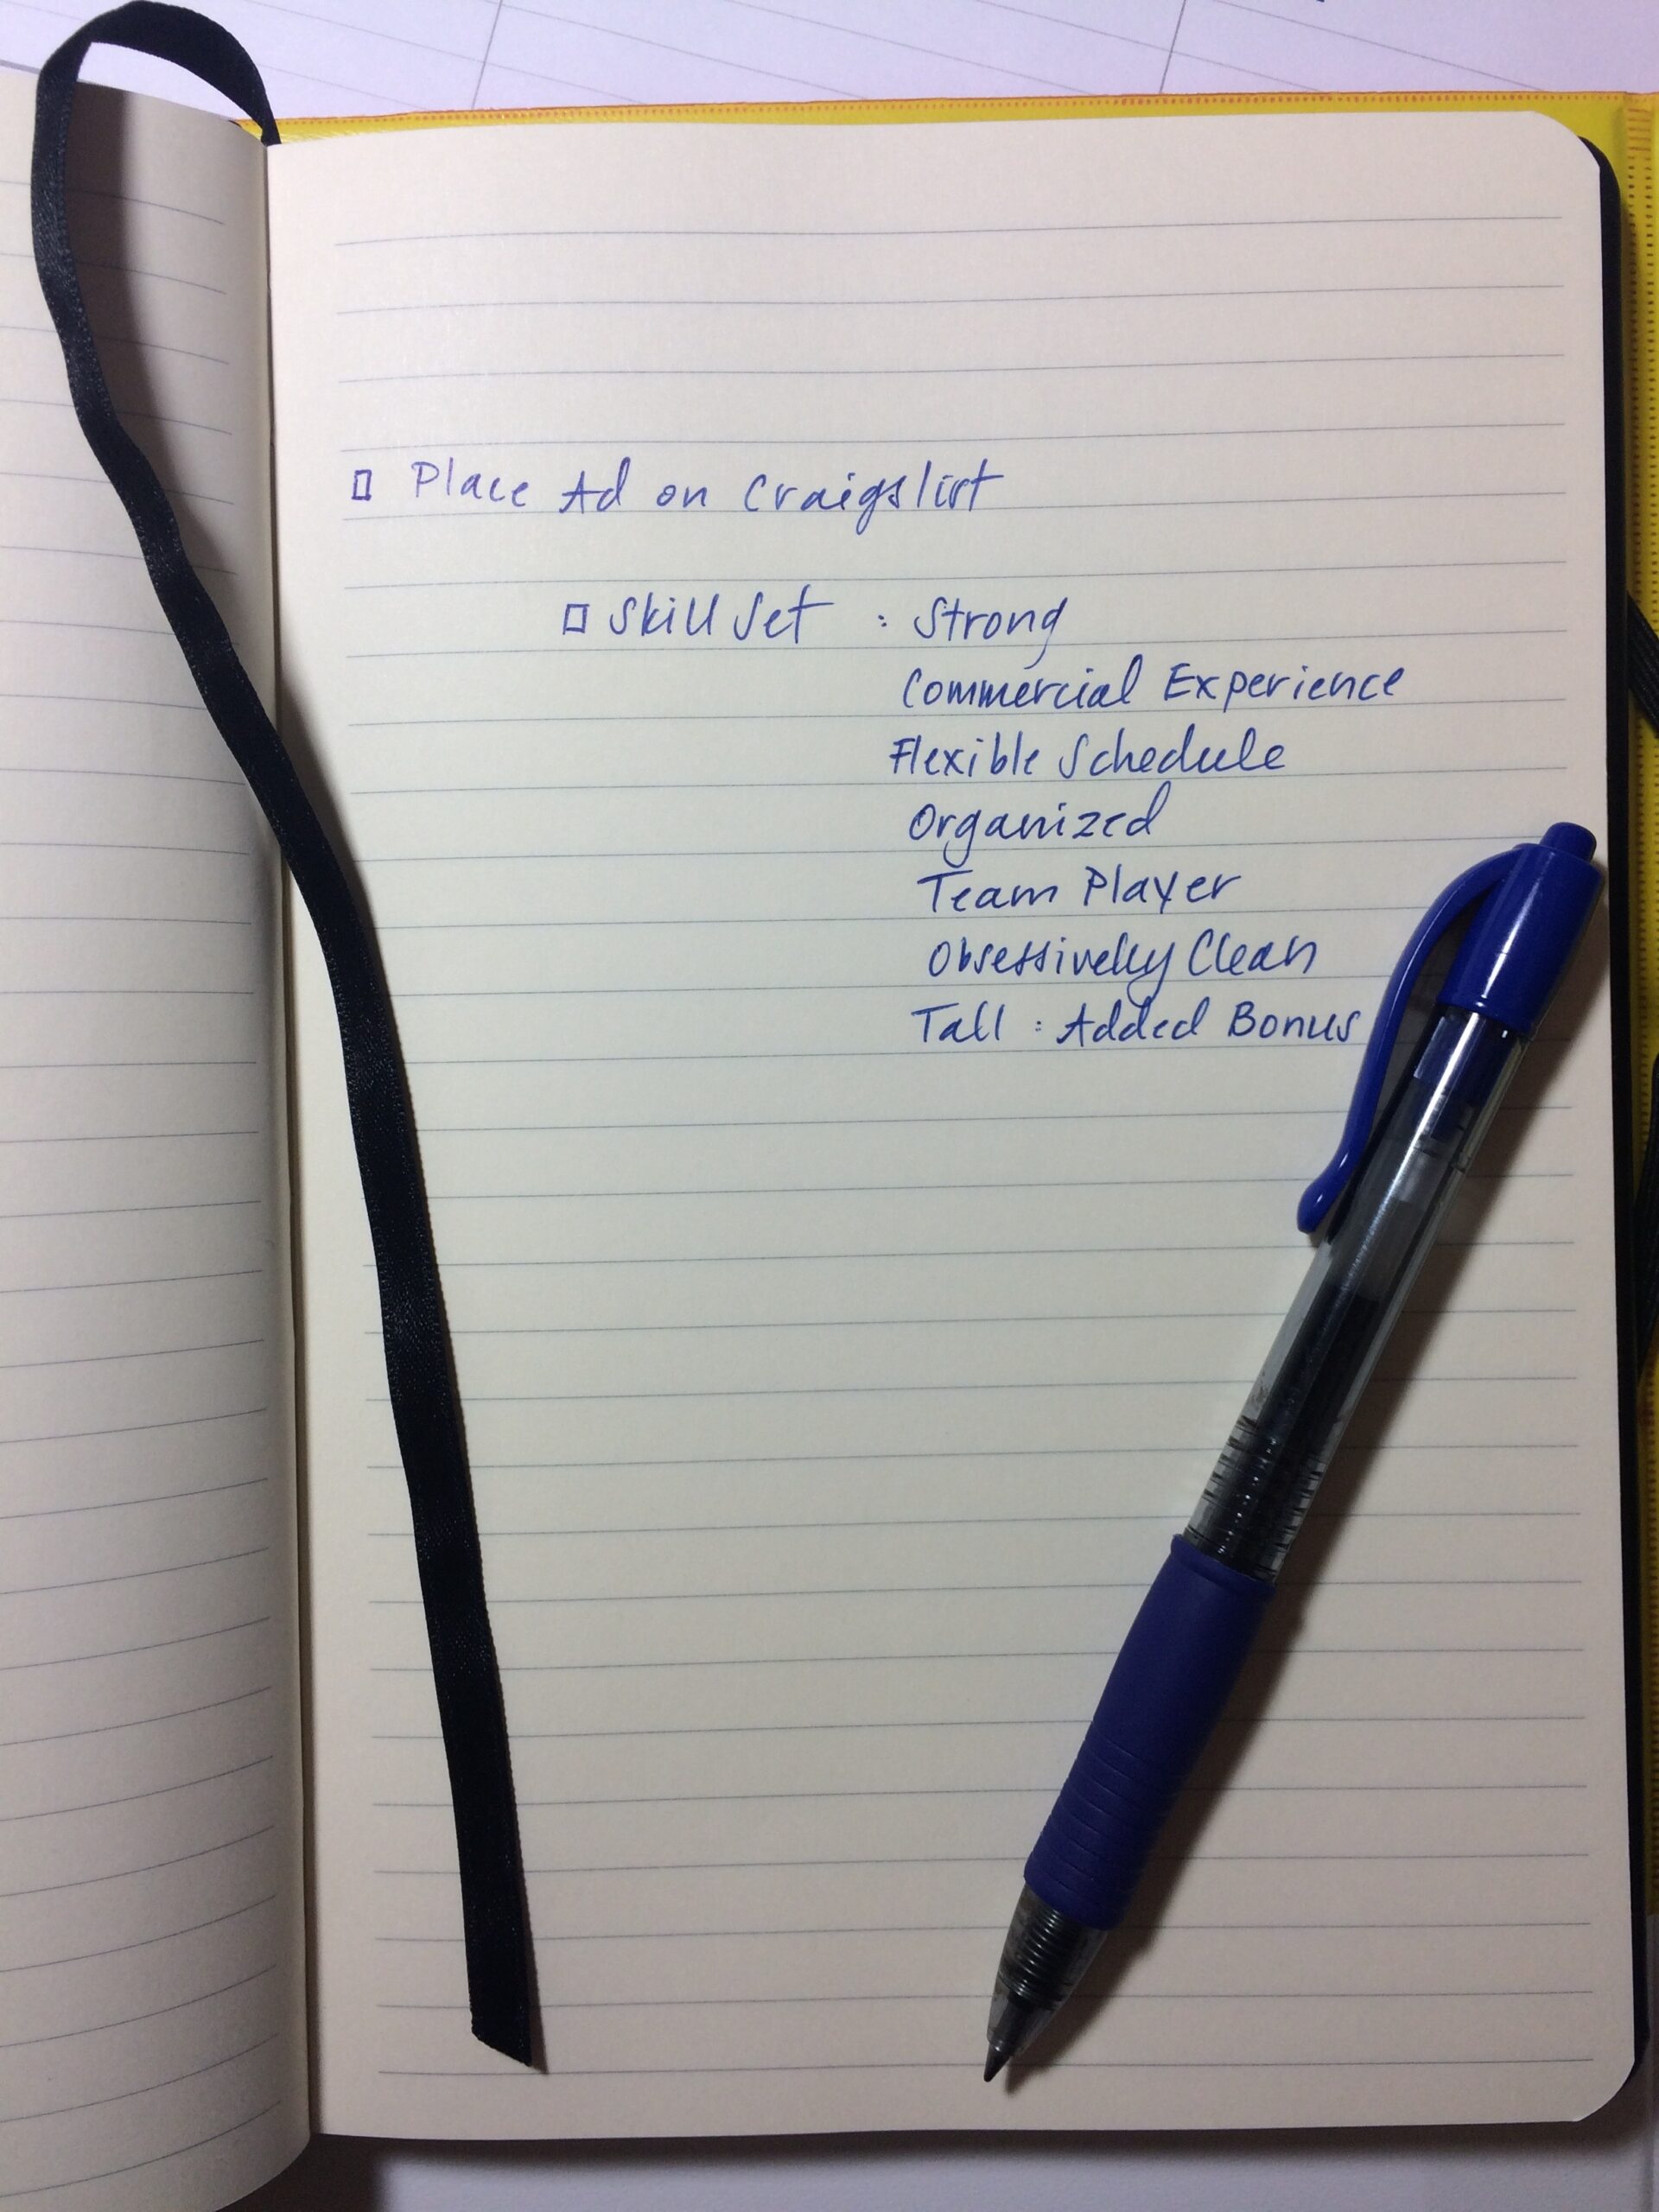 ☐ Place Ad on Craigslist
☐ Skill Set : Strong
Commercial Experience
Flexible Schedule
Organized
Team Player
Obsessively Clean
Tall : Added Bonus